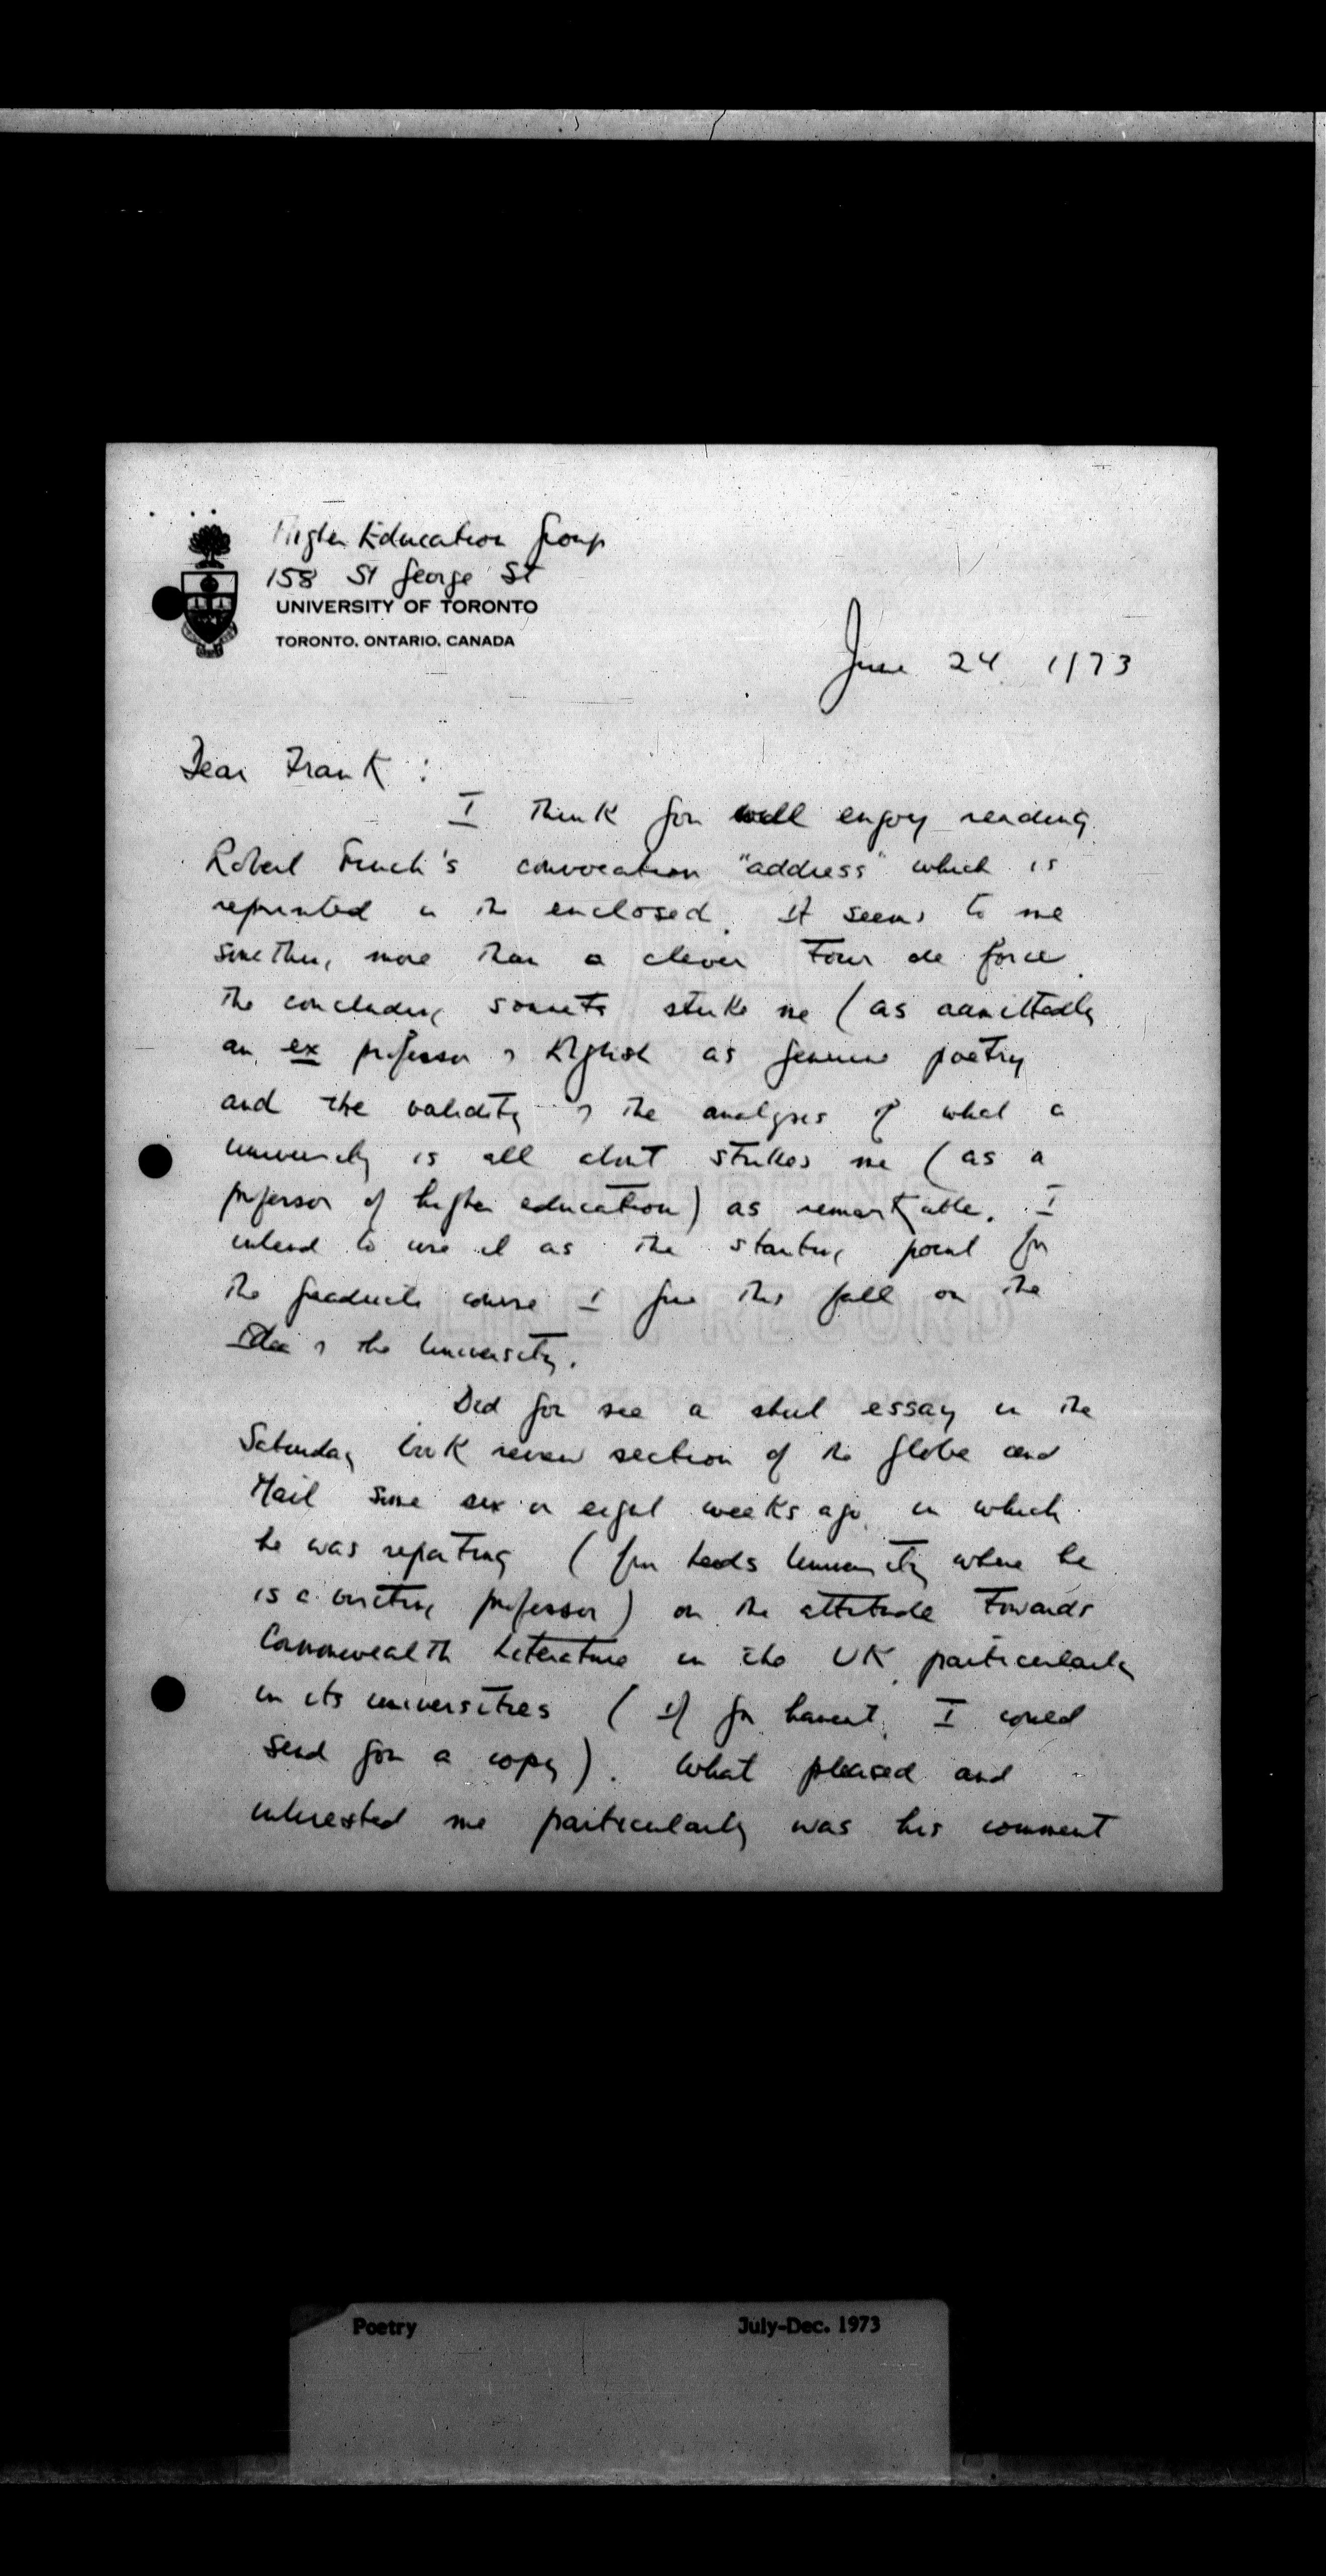 Higher Education Group
158 St George St
UNIVERSITY OF TORONTO
TORONTO, ONTARIO, CANADA
June 24 1973
Dear Frank :
I think you will enjoy reading
Robert Finch's convocation "address" which is
reprinted in the enclosed. It seems to me
something more than a clever tour de force.
The concluding sonnets strike me (as admittedly
an ex professor of English as genuine poetry
and the validity of the analysis of what a
university is all about strikes me (as a
professor of higher education) as remarkable. I
intend to use it as the starting point for
the graduate course I give this fall on the
Idea of the University.
Did you see a short essay in the
Saturday book review section of the Globe and
Mail some six or eight weeks ago in which
he was reporting (from Leeds University where he
is a visiting professor) on the attitude towards
Commonwealth Literature in the UK, particularly
in its universities (If you havent, I could
send you a copy). What pleased and
interested me particularly was his comment
Poetry July-Dec. 1973